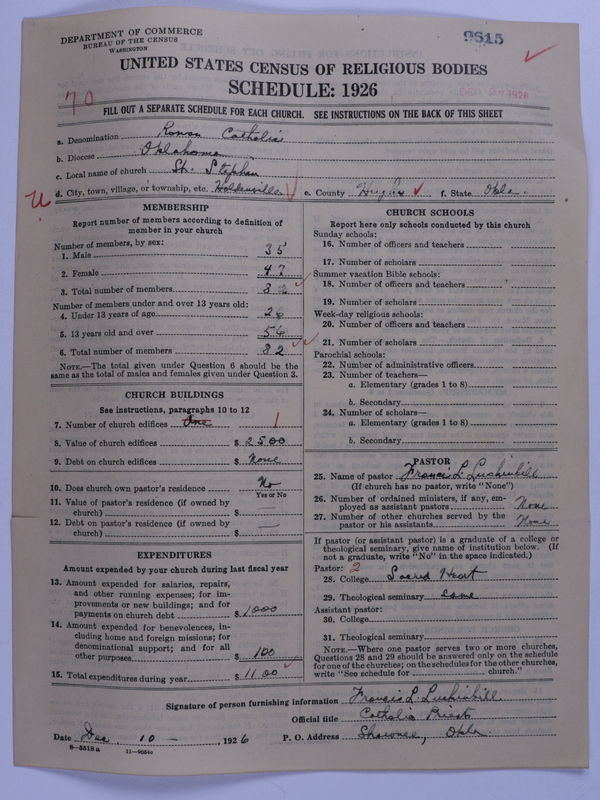 DEPARTMENT OF COMMERCE
BUREAU OF THE CENSUS
WASHINGTON
9815
UNITED STATES CENSUS OF RELIGIOUS BODIES
SCHEDULE: 1926
70
FILL OUT A SEPARATE SCHEDULE FOR EACH CHURCH. SEE INSTRUCTIONS ON THE BACK OF THIS SHEET
a. Denomination Roman Catholic
b. Diocese Oklahoma
c. Local name of church St. Stephan
d. City, town, village, or township, etc. Holdenville e. County Hughes f. State Okla.
MEMBERSHIP
Report number of members according to definition of member in your church
Number of members, by sex:
1. Male 35
2. Female 47
3. Total number of members 82
Number of members under and over 13 years old:
4. Under 13 years of age 26
5. 13 years old and over 56
6. Total number of members 82
NOTE.—The total given under Question 6 should be the same as the total of males and females given under Question 3.
CHURCH BUILDINGS
See instructions, paragraphs 10 to 12
7. Number of church edifices One 1
8. Value of church edifices $ 2500
9. Debt on church edifices $ None
10. Does church own pastor's residence No
Yes or No
11. Value of pastor's residence (if owned by church) $ —
12. Debt on pastor's residence (if owned by church) $ —
EXPENDITURES
Amount expended by your church during last fiscal year
13. Amount expended for salaries, repairs, and other running expenses; for improvements or new buildings; and for payments on church debt $ 1000
14. Amount expended for benevolences, including home and foreign missions; for denominational support; and for all other purposes $ 100
15. Total expenditures during year $ 1100
CHURCH SCHOOLS
Report here only schools conducted by this church
Sunday schools:
16. Number of officers and teachers
17. Number of scholars
Summer vacation Bible schools:
18. Number of officers and teachers
19. Number of scholars
Week-day religious schools:
20. Number of officers and teachers
21. Number of scholars
Parochial schools:
22. Number of administrative officers
23. Number of teachers—
a. Elementary (grades 1 to 8)
b. Secondary
24. Number of scholars—
a. Elementary (grades 1 to 8)
b. Secondary
PASTOR
25. Name of pastor Francis L.
(If church has no pastor, write "None")
26. Number of ordained ministers, if any, employed as assistant pastors None
27. Number of other churches served by the pastor or his assistants None
If pastor (or assistant pastor) is a graduate of a college or theological seminary, give name of institution below. (If not a graduate, write "No" in the space indicated.)
Pastor: 2
28. College Sacred Heart
29. Theological seminary Same
Assistant pastor:
30. College
31. Theological seminary
NOTE.—Where one pastor serves two or more churches, Questions 28 and 29 should be answered only on the schedule for one of the churches; on the schedules for the other churches, write "See schedule for church."
Signature of person furnishing information Francis L.
Official title Catholic Priest
Date Dec. 10 —, 1926 P. O. Address Shawnee, Okla.
8—5518 a